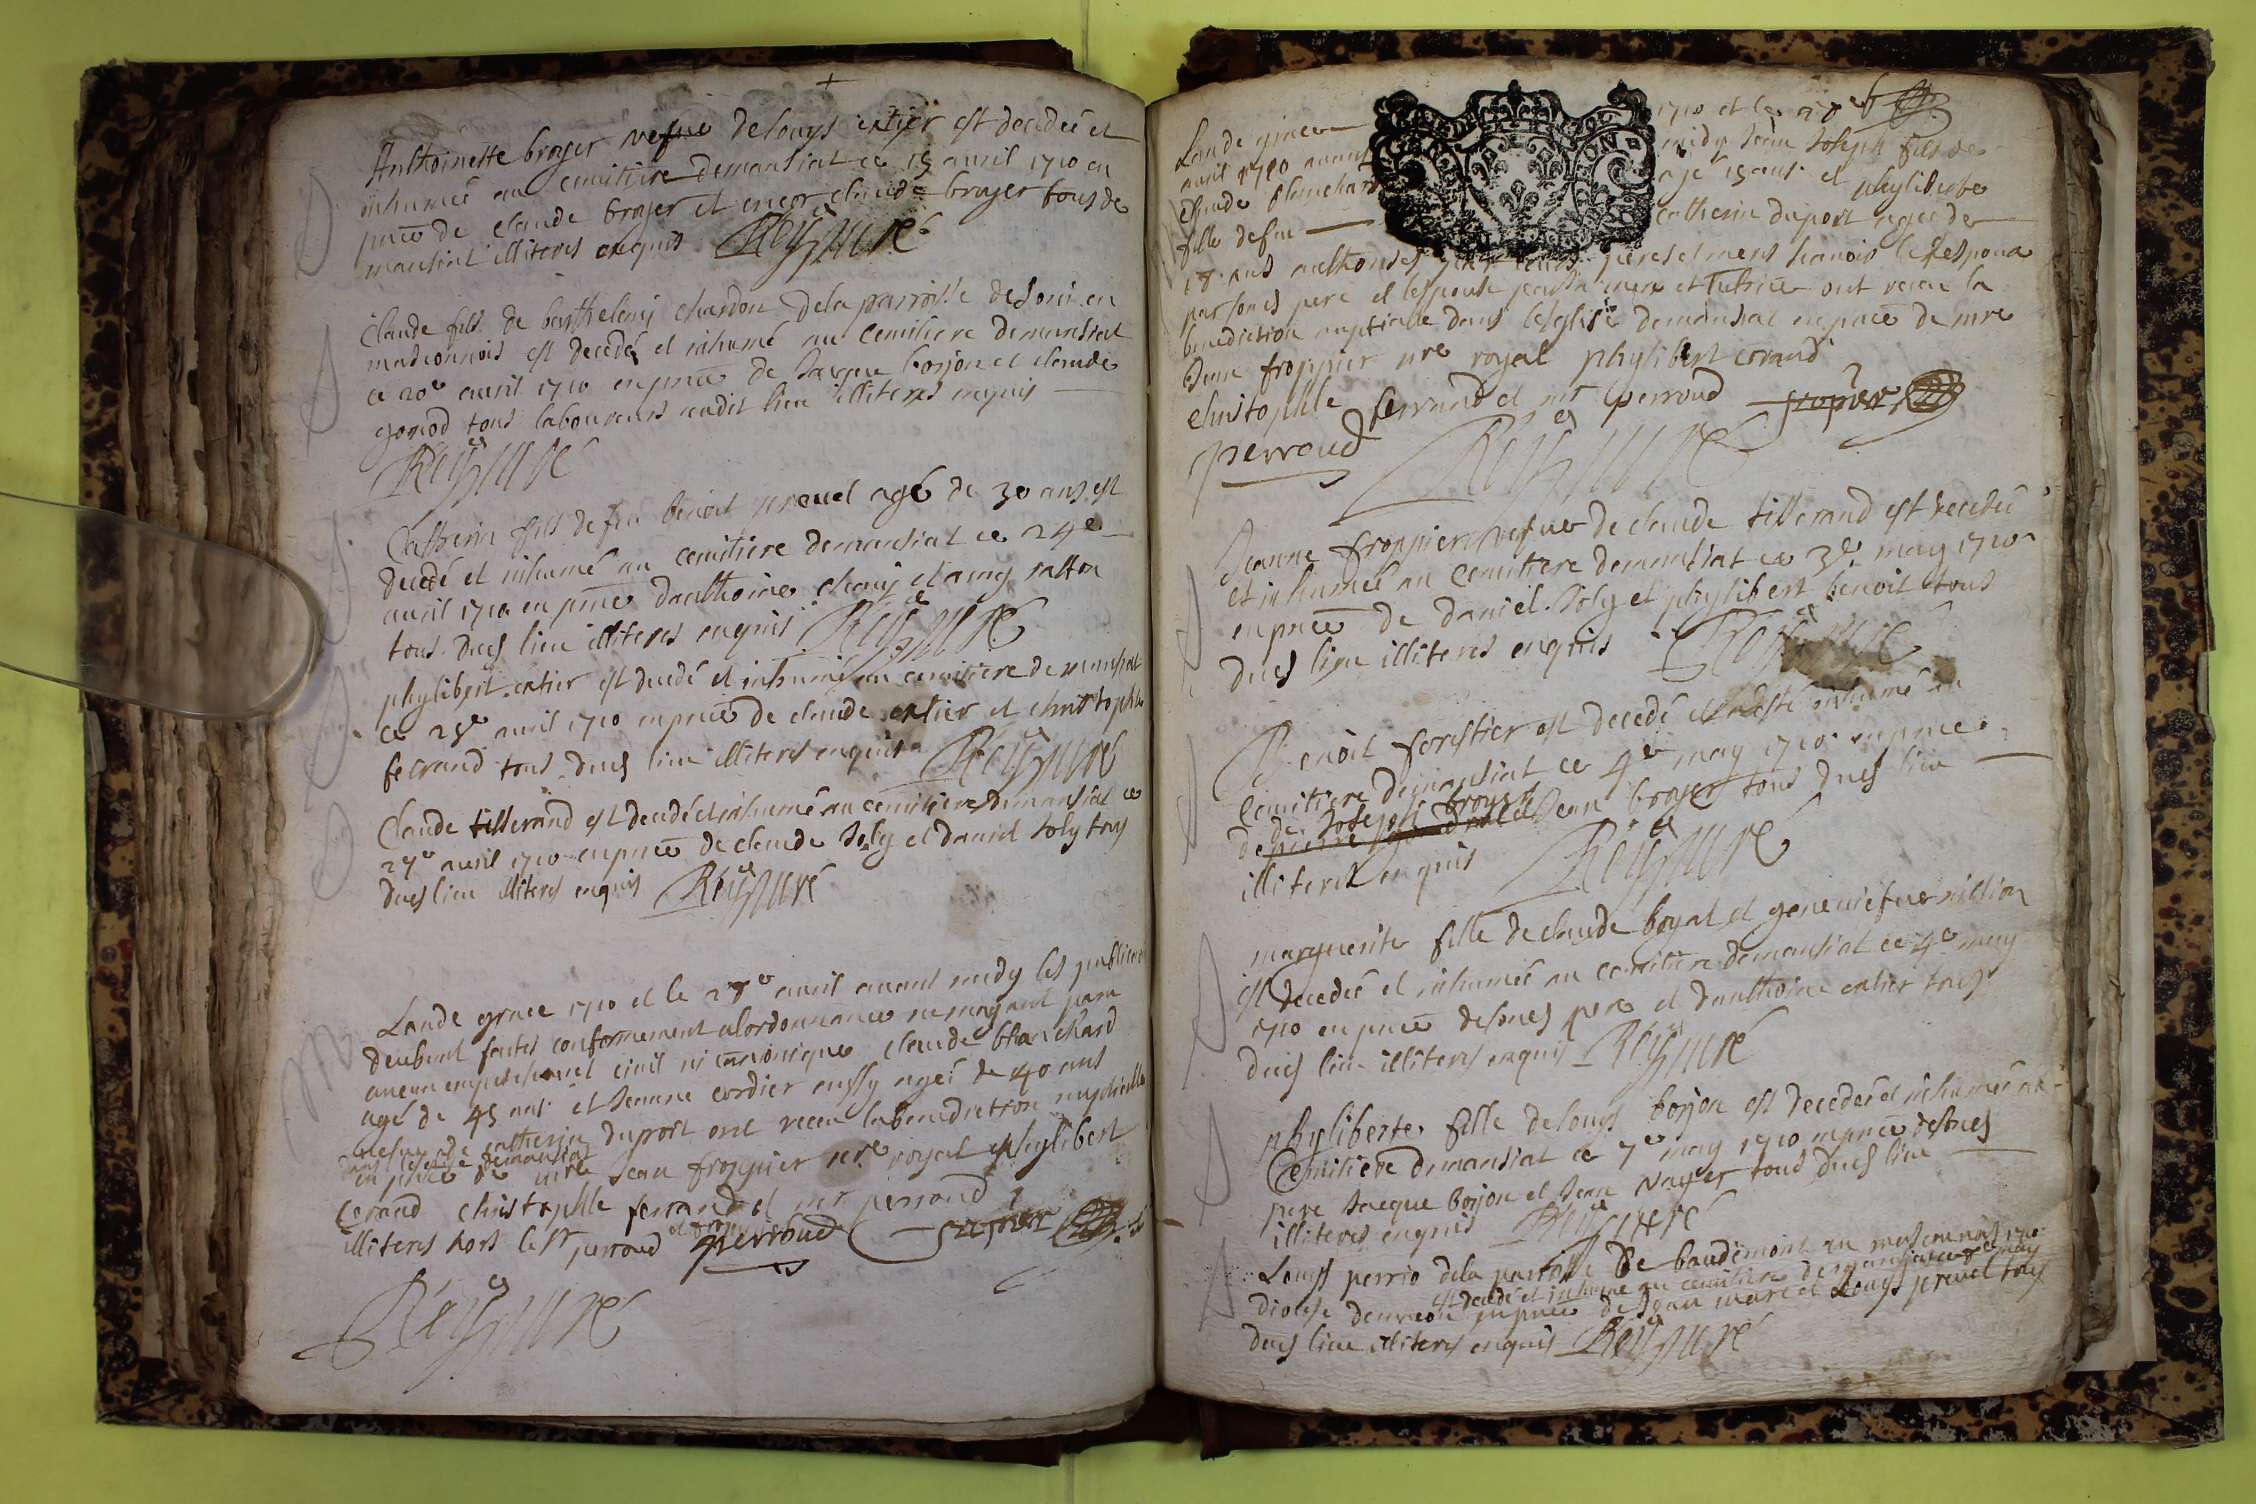 Anthoinette broyer vefue de louys catier est decedeé et
inhumeé au cemitiere demansiat ce 15 auril 1710 en
pnce de claude broyer et encor claude broyer tous de
mansiat illiteres enquis Rey curé
Claude fils de barthelemy chardon de la parroisse de en
est decedé et inhumé au cemitiere demansiat
ce 20e auril 1710 en pnce de Jacque borjon et claude
gonod tous laboureurs audit lieu illiteres enquis
Rey curé
Catherin fils de feu benoit preuel agé de 30 ans est
decedé et inhumé au cemitiere demansiat ce 24e
auril 1710 en pnce danthoine et
tous duds lieu illiteres enquis Rey curé
phylibert catier est decedé et inhumé au cemitiere demansiat
ce 25e auril 1710 en pnce de claude catier et christophle
ferrand tous duds lieu illiteres enquis Rey curé
Claude tillerand est decedé et inhumé au cemitiere demansiat ce
27e auril 1710 en pnce de claude Joly et daniel Joly tous
duds lieu illiteres enquis Rey curé
Lan de grace 1710 et le 28e auril auant midy les publica
deubment faites conformement a lordonnance ne nayant paru
aucun empeschement ciuil ni canonique claude blanchard
agé de 45 ans et Jeanne cordier aussy ageé de 40 ans
vefue de catherin duport ont receu la benediction nuptialle
dans leglise demansiat
en pnce de mre Jean froppier nre royal phylibert
Corand christophle ferrand et mr perroud
illiteres hors le sr perroud et froppier perroud fropier
Rey curé
Lan de grace 1710 et le 28e
auril 1710 auant midy Jean Joseph fils de
claude blanchard agé 15 ans et phyliberte
fille de feu catherin duport ageé de
18 ans authorisés par leurs peres et meres scauoir lespoux
par sones pere et lespouse par sa mere et tutrice ont receu la
benediction nuptiale dans leglise demansiat en pnce de mre
Jean froppier nre royal phylibert corand
christophle ferrand et mr perroud fropier
perroud Rey curé
Jeanne froppier vefue de claude tillerand est decedeé
et inhumeé au cemitiere demansiat ce 3e may 1710
en pnce de daniel Joly et phylibert benoit tous
duds lieu illiteres enquis Rey curé
Benoit forestier est decedé et a esté inhumé au
cemitiere demansiat ce 4e may 1710 en pnce
de Joseph broyer
de pierre et Jean broyer tous duds lieu
illiteres enquis Rey curé
marguerite fille de claude boyat et geneuiefue
est decedeé et inhumeé au cemitiere demansiat ce 4e may
1710 en pnce desones pere et danthoine catier tous
duds lieu illiteres enquis Rey curé
phyliberte fille de louys borjon est decedeé et inhumeé au
Cemitiere demansiat ce 7e may 1710 en pnce desones
pere Jacque borjon et Jean vayer tous duds lieu
illiteres enquis Rey curé
Louys perrio de la parroisse De baudemont en
est decedé et inhumé au cemitiere demansiat ce may
diocese en pnce de Jean marc et Louys preuel tous
duds lieu illiteres enquis Rey curé